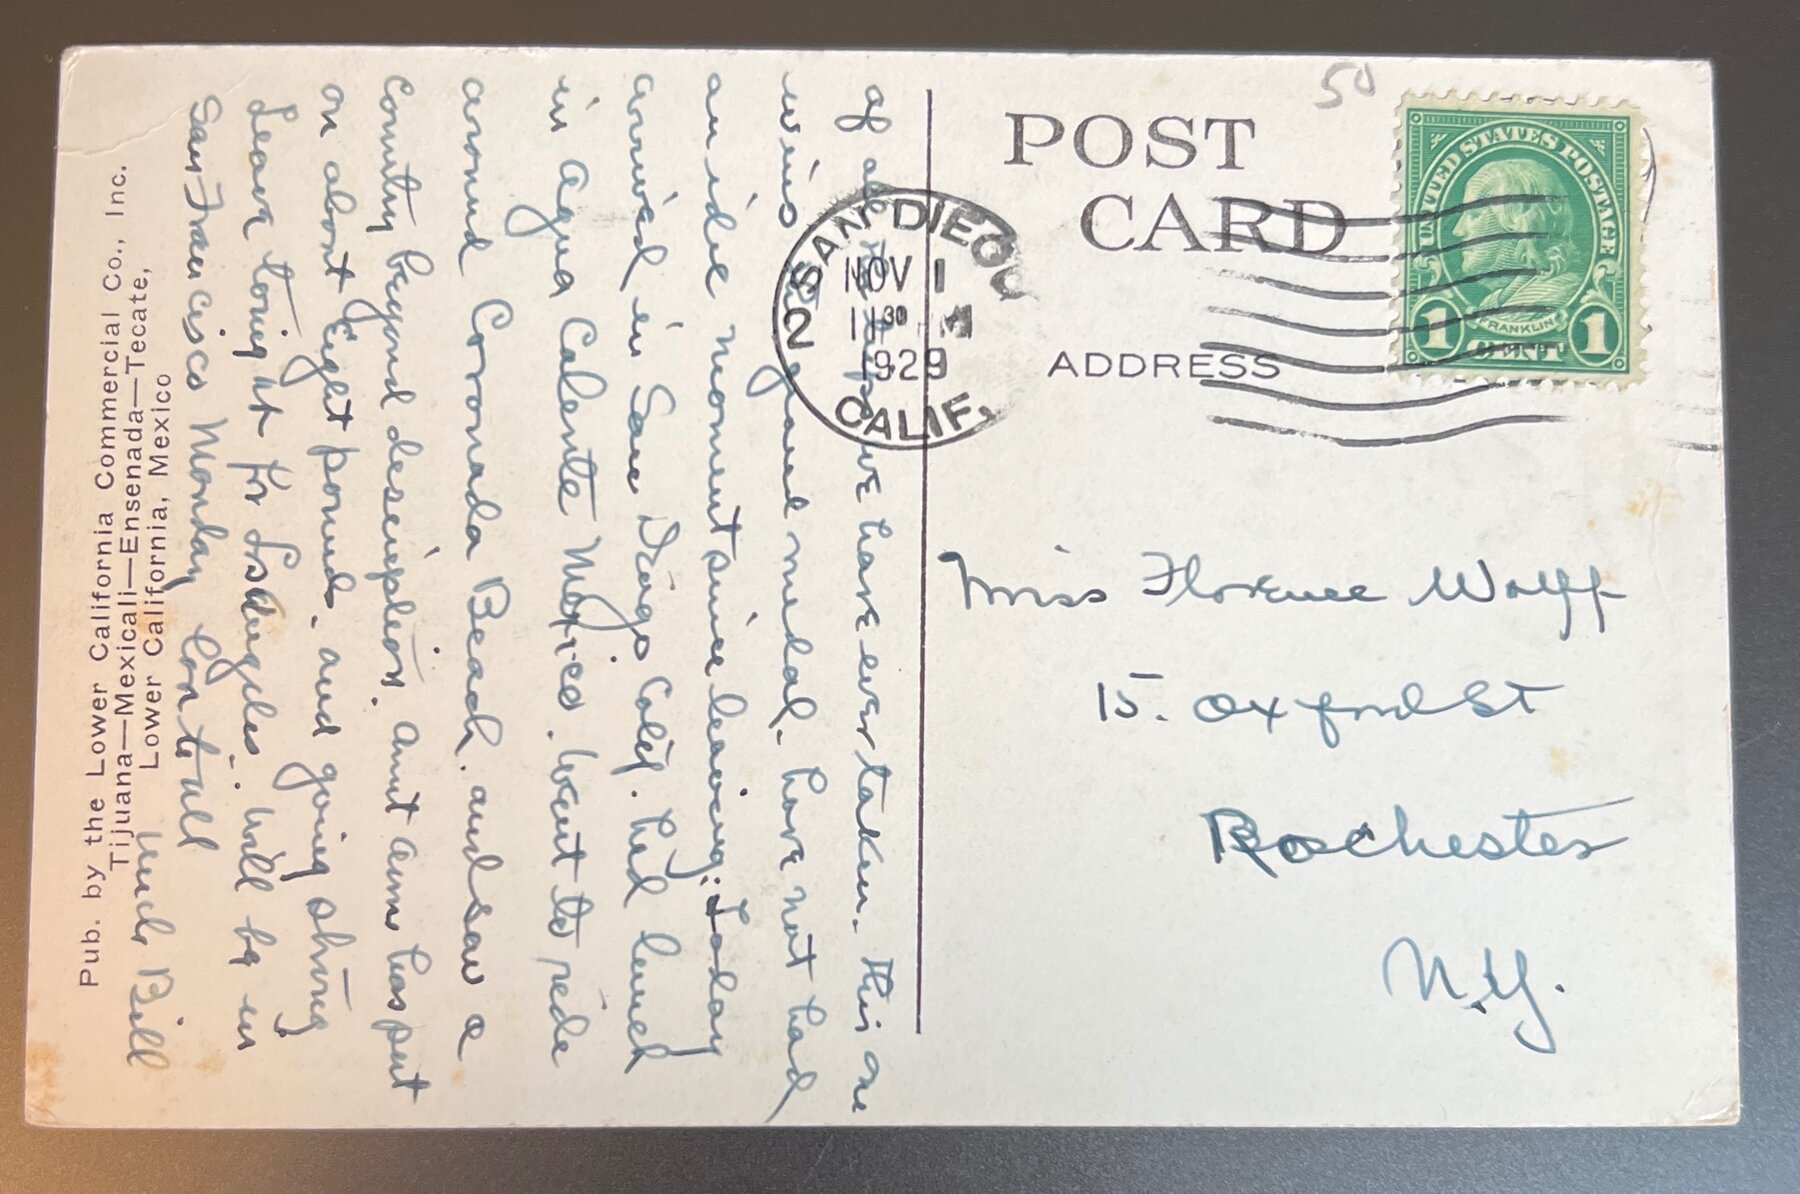 of all the trips we have ever taken. This one
wins the grand medal. have not had
an idle moment since leaving: Today
arrived in San Diego Calif. had lunch
in Agua Caliente Mexico. Went to ride
around Coronada Beach. and saw a
Country beyond desciption. Aunt Cam has put
on about Eight pounds. and going strong
Leave tonight for Los Angeles. Will be in
San Francisco Monday Con to all
Uncle Bill
Pub. by the Lower California Commercial Co., Inc.
Tijuana—Mexicali—Ensenada—Tecate,
Lower California, Mexico
50
POST
CARD
ADDRESS
SAN DIEGO
2
NOV 1
1 30 M
1929
CALIF.
UNITED STATES POSTAGE
FRANKLIN
1 CENT 1
Miss Florence Wolff
15. Oxford St
Rochester
N.Y.